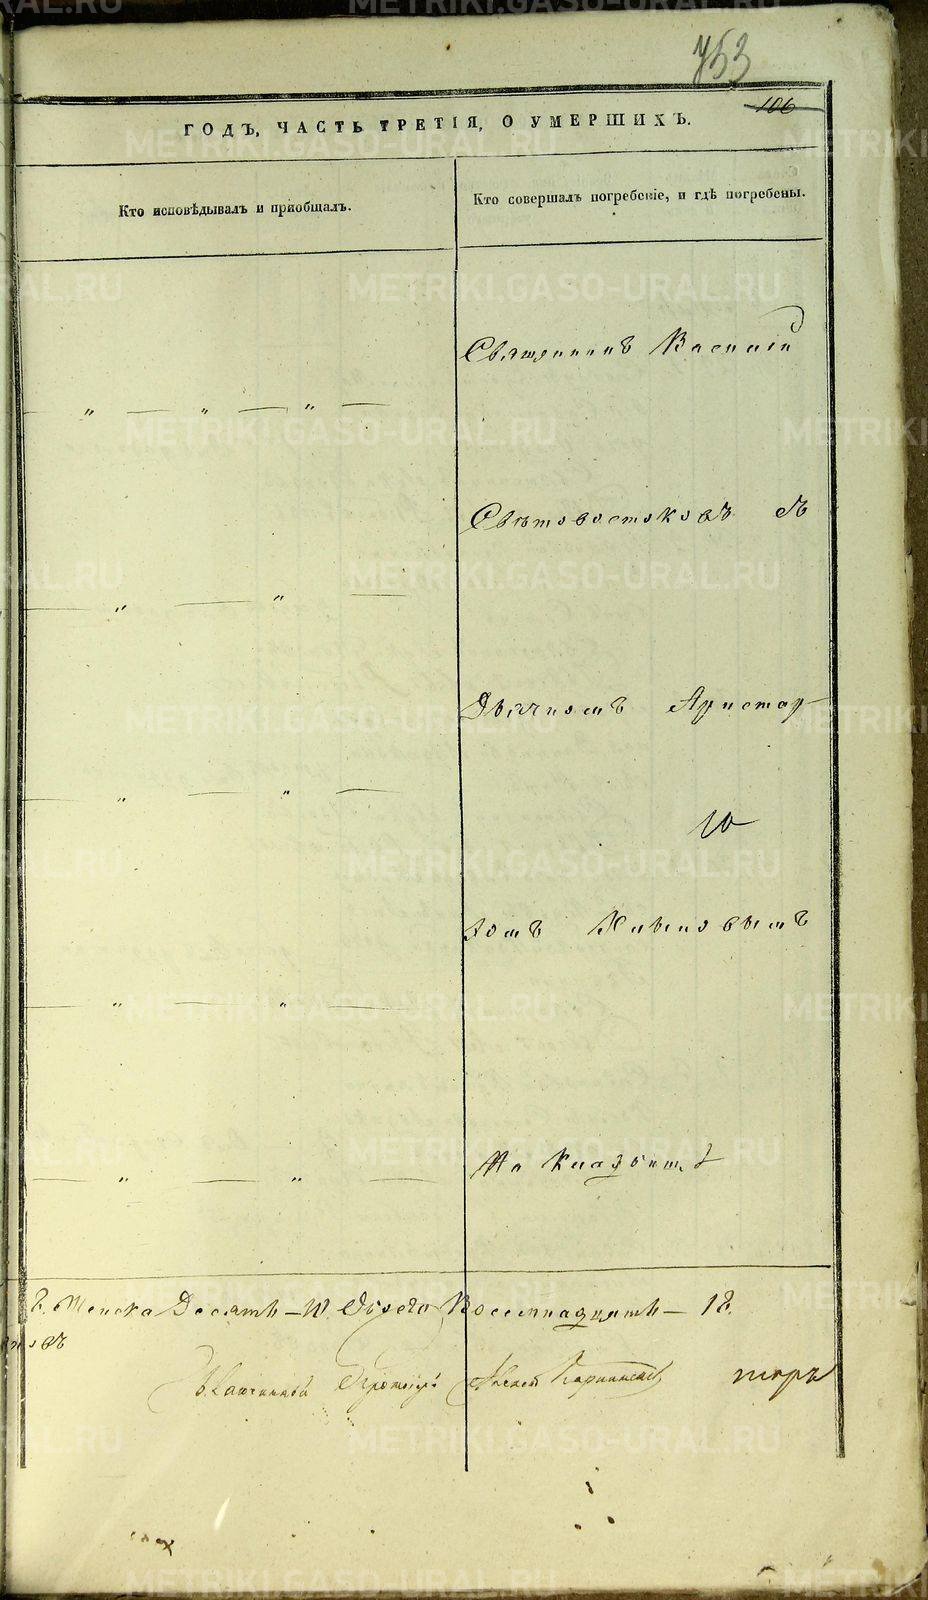 753
106
ГОДЪ, ЧАСТЬ ТРЕТІЯ, О УМЕРШИХЪ.
Кто исповѣдывалъ и пріобщалъ.
Кто совершалъ погребеніе, и гдѣ погребены.
Священникъ Василій
" " "
Свѣтовостоковъ съ
" "
Дьячкомъ Аристар-
" "
10
хомъ
" "
На Кладбищѣ
" "
8. Женска Десять - 10. Обоего Восемнадцать - 18.
Протоіерей
METRIKI.GASO-URAL.RU